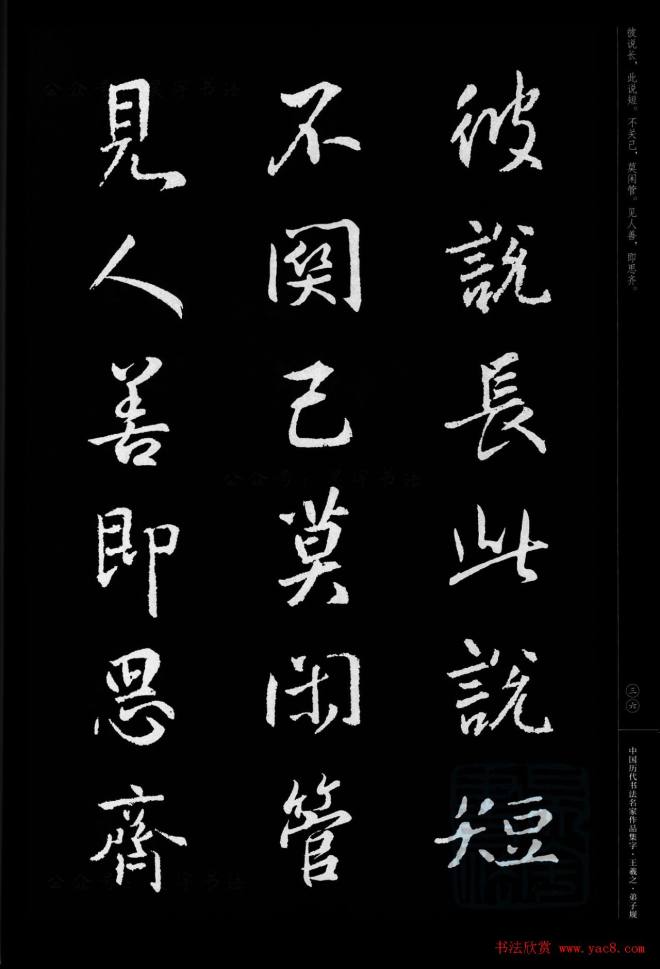 彼説長此説短
不關己莫閑管
見人善即思齊
彼说长，此说短。不关己，莫闲管。见人善，即思齐。
三六
中国历代书法名家作品集字·王羲之·弟子规
书法欣赏 www.yac8.com